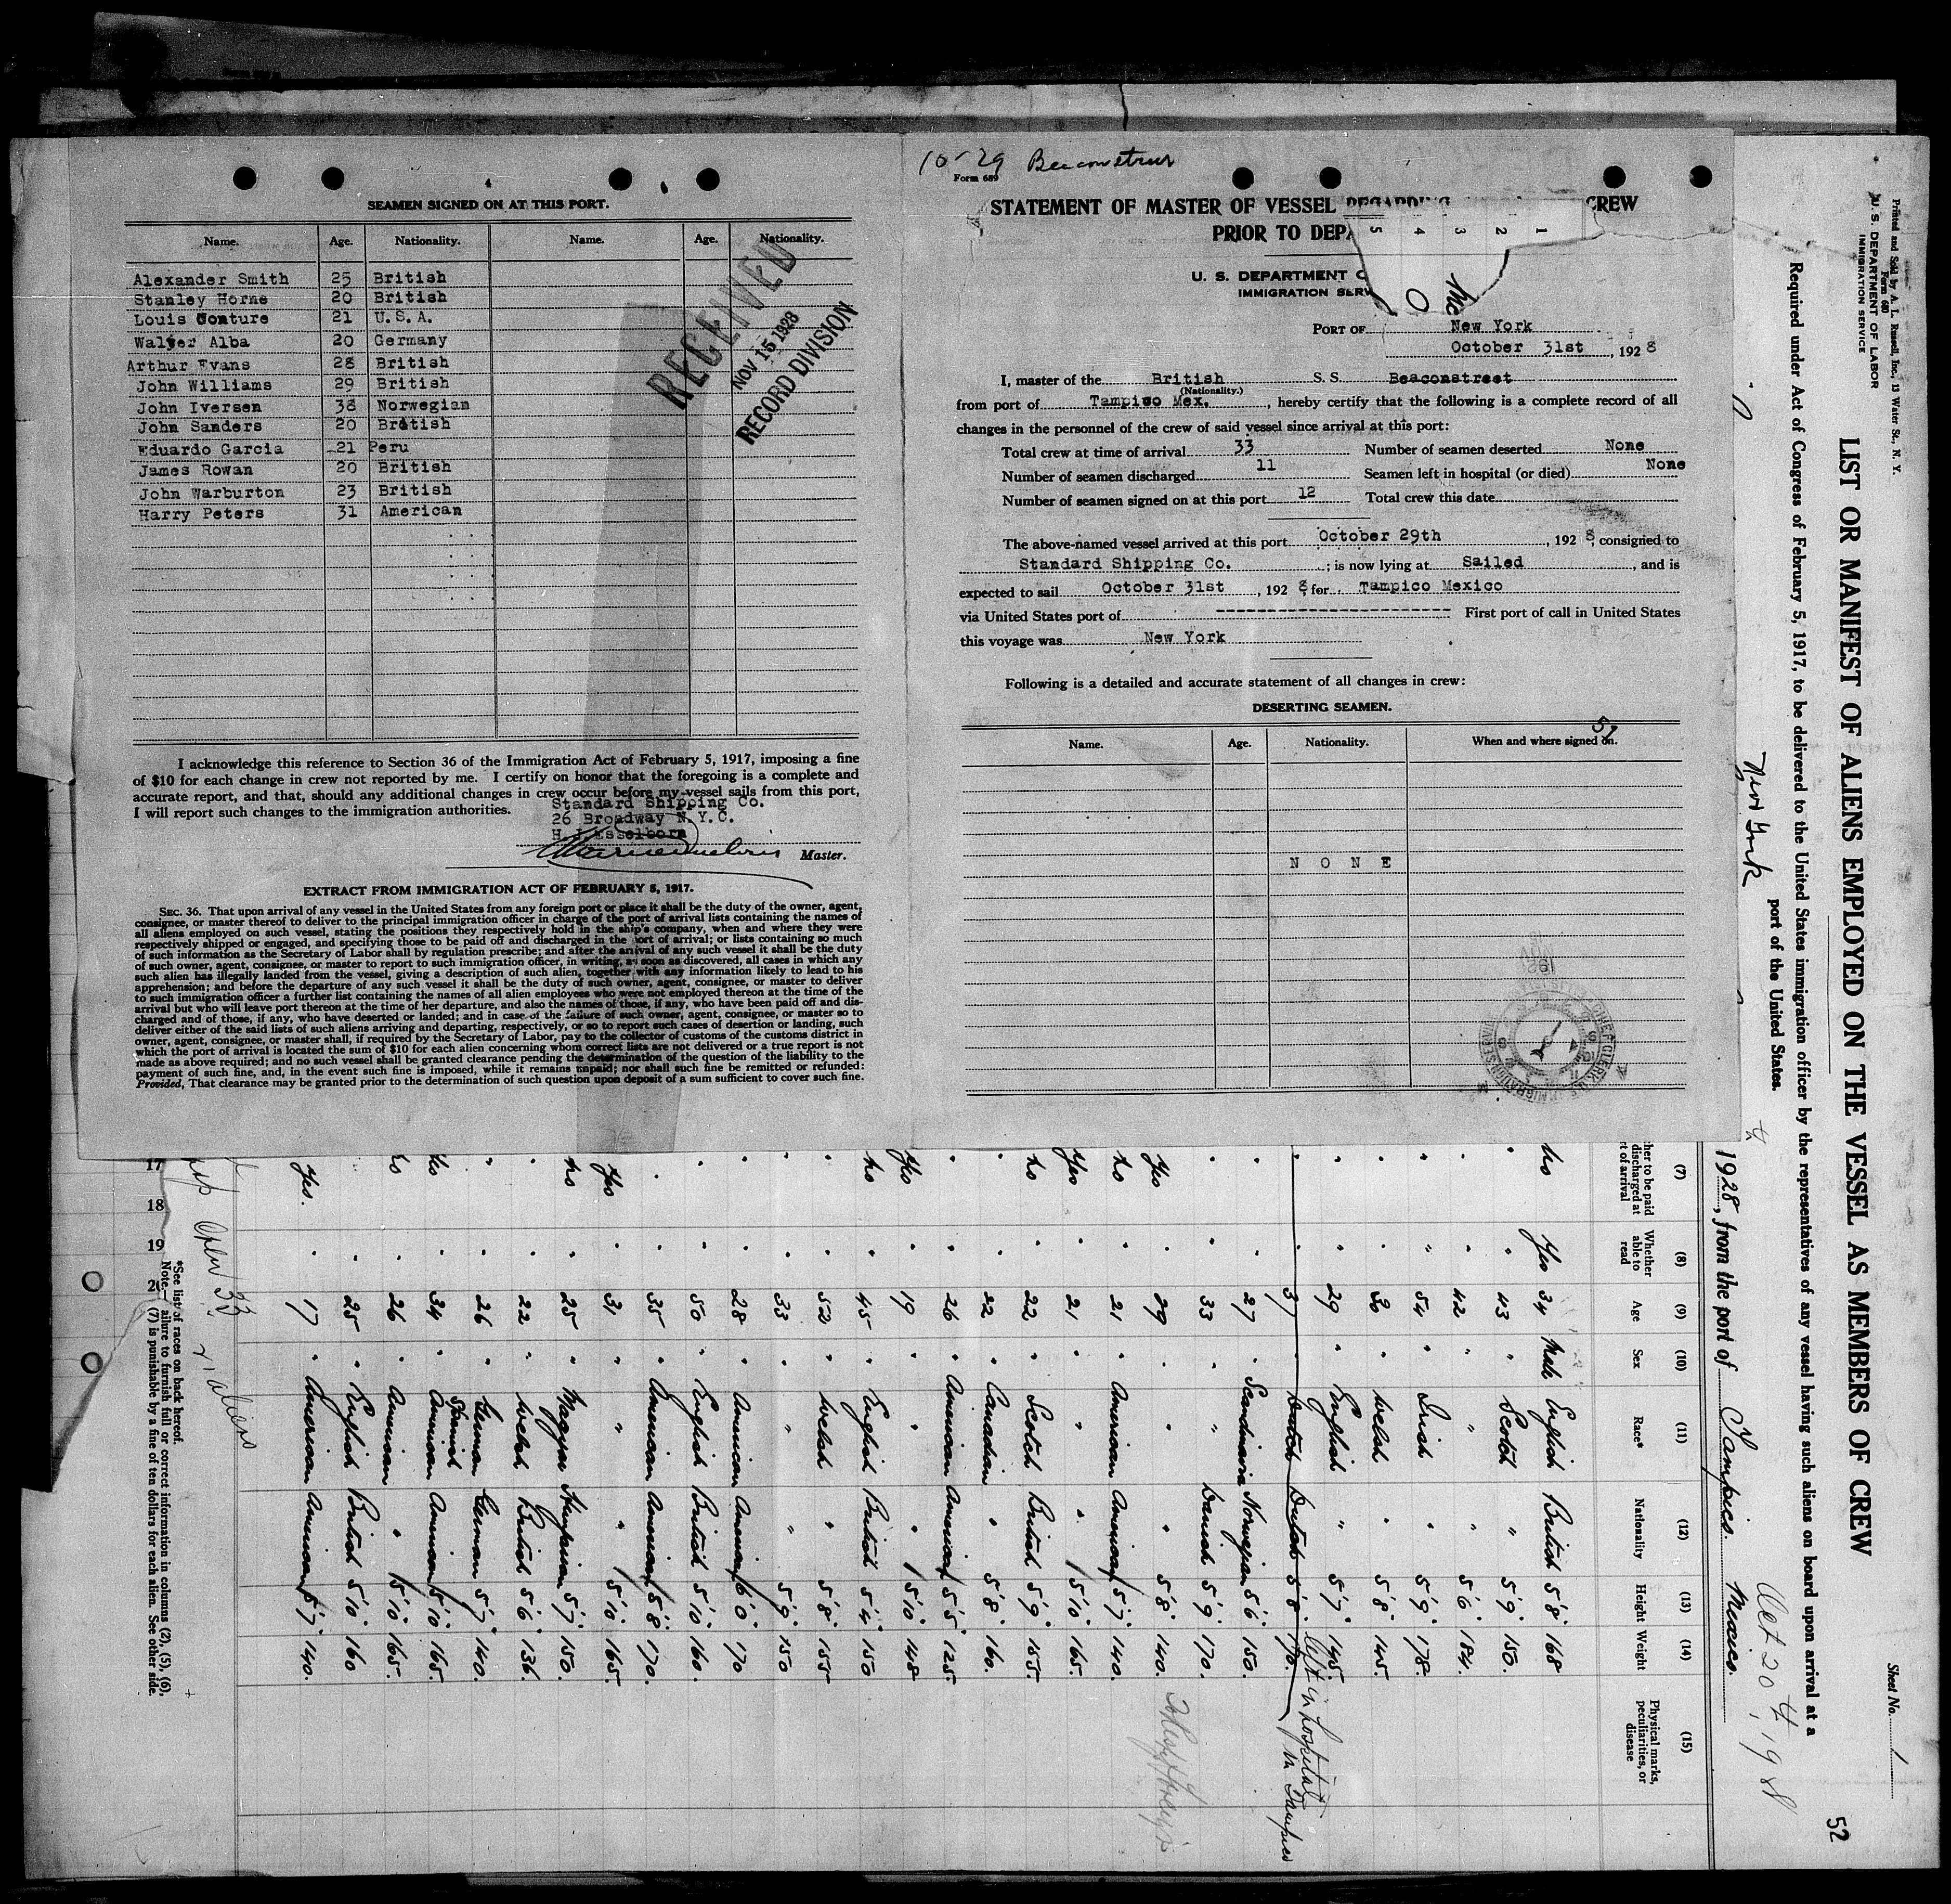 4
SEAMEN SIGNED ON AT THIS PORT.
Name. Age. Nationality. Name. Age. Nationality.
Alexander Smith 25 British
Stanley Horne 20 British
Louis Conture 21 U.S.A.
Walter Alba 20 Germany
Arthur Evans 28 British
John Williams 29 British
John Iversen 38 Norwegian
John Sanders 20 British
Eduardo Garcia 21 Peru
James Rowan 20 British
John Warburton 23 British
Harry Peters 31 American
RECEIVED
NOV 15 1928
RECORD DIVISION
I acknowledge this reference to Section 36 of the Immigration Act of February 5, 1917, imposing a fine
of $10 for each change in crew not reported by me. I certify on honor that the foregoing is a complete and
accurate report, and that, should any additional changes in crew occur before my vessel sails from this port,
I will report such changes to the immigration authorities.
Standard Shipping Co.
26 Broadway N.Y.C.
H.J.Esselborn
Master.
EXTRACT FROM IMMIGRATION ACT OF FEBRUARY 5, 1917.
SEC. 36. That upon arrival of any vessel in the United States from any foreign port or place it shall be the duty of the owner, agent,
consignee, or master thereof to deliver to the principal immigration officer in charge of the port of arrival lists containing the names of
all aliens employed on such vessel, stating the positions they respectively hold in the ship's company, when and where they were
respectively shipped or engaged, and specifying those to be paid off and discharged in the port of arrival; or lists containing so much
of such information as the Secretary of Labor shall by regulation prescribe; and after the arrival of any such vessel it shall be the duty
of such owner, agent, consignee, or master to report to such immigration officer, in writing, as soon as discovered, all cases in which any
such alien has illegally landed from the vessel, giving a description of such alien, together with any information likely to lead to his
apprehension; and before the departure of any such vessel it shall be the duty of such owner, agent, consignee, or master to deliver
to such immigration officer a further list containing the names of all alien employees who were not employed thereon at the time of the
arrival but who will leave port thereon at the time of her departure, and also the names of those, if any, who have been paid off and dis-
charged and of those, if any, who have deserted or landed; and in case of the failure of such owner, agent, consignee, or master so to
deliver either of the said lists of such aliens arriving and departing, respectively, or so to report such cases of desertion or landing, such
owner, agent, consignee, or master shall, if required by the Secretary of Labor, pay to the collector of customs of the customs district in
which the port of arrival is located the sum of $10 for each alien concerning whom correct lists are not delivered or a true report is not
made as above required; and no such vessel shall be granted clearance pending the determination of the question of the liability to the
payment of such fine, and, in the event such fine is imposed, while it remains unpaid; nor shall such fine be remitted or refunded:
Provided, That clearance may be granted prior to the determination of such question upon deposit of a sum sufficient to cover such fine.
10-29
Form 689
STATEMENT OF MASTER OF VESSEL REGARDING CREW
PRIOR TO DEPA
U. S. DEPARTMENT O
IMMIGRATION SERV
5 4 3 2 1
PORT OF New York
October 31st, 1928
I, master of the British S. S. Beaconstreet
(Nationality.)
from port of Tampico Mex., hereby certify that the following is a complete record of all
changes in the personnel of the crew of said vessel since arrival at this port:
Total crew at time of arrival 33 Number of seamen deserted None
Number of seamen discharged 11 Seamen left in hospital (or died) None
Number of seamen signed on at this port 12 Total crew this date
The above-named vessel arrived at this port October 29th, 1928, consigned to
Standard Shipping Co.; is now lying at Sailed, and is
expected to sail October 31st, 1928 for Tampico Mexico
via United States port of ---- First port of call in United States
this voyage was New York
Following is a detailed and accurate statement of all changes in crew:
DESERTING SEAMEN.
51
Name. Age. Nationality. When and where signed on.
N O N E
Printed and Sold by A. L. Russell, Inc., 13 Water St., N. Y.
Form 680
U. S. DEPARTMENT OF LABOR
IMMIGRATION SERVICE
Sheet No. 1
52
LIST OR MANIFEST OF ALIENS EMPLOYED ON THE VESSEL AS MEMBERS OF CREW
Required under Act of Congress of February 5, 1917, to be delivered to the United States immigration officer by the representatives of any vessel having such aliens on board upon arrival at a
port of the United States.
New York
Oct 20th, 1928
1928, from the port of Tampico. Mexico.
(7) (8) (9) (10) (11) (12) (13) (14) (15)
her to be paid discharged at t of arrival
Whether able to read
Age
Sex
Race*
Nationality
Height
Weight
Physical marks, peculiarities, or disease
No Yes 34 Male English British 5'8" 168
" " 43 " Scotch " 5'9" 150.
" " 42 " " " 5'6" 184.
" " 54 " Irish " 5'9" 178.
" " 30 " Welsh " 5'8" 145.
" " 29 " English " 5'7" 145.
" " 37 " Dutch Dutch 5'8" 170. left in hospital in Tampico
" " 27 " Scandinavia Norwegian 5'6" 150.
" " 33 " " Danish 5'9" 170.
Yes " 29 " " " 5'8" 140.
No " 21 " American American 5'7" 140.
Yes " 21 " " " 5'10" 165.
No " 22 " Scotch British 5'9" 155.
" " 22 " Canadian " 5'8" 160.
" " 26 " American American 5'5" 125.
Yes " 19 " " " 5'10" 148
No " 45 " English British 5'4" 150
" " 52 " Welsh " 5'8" 155
" " 33 " " " 5'9" 150
" " 28 " American American 6'0" 170
" " 50 " English British 5'10" 160.
" " 35 " American American 5'8" 170.
Yes " 31 " " " 5'10" 165.
No " 25 " Magyar Hungarian 5'7" 150.
" " 22 " Welsh British 5'6" 136.
" " 26 " German German 5'7" 140.
No " 34 " Spanish American American 5'10" 165.
No " 26 " American " 5'10" 165.
" 25 " English British 5'10" 160
Yes. " 17 " American American 5'7" 140.
17
18
19
20
33
21 aliens
*See list of races on back hereof.
Note.—Failure to furnish full or correct information in columns (2), (5), (6),
(7) is punishable by a fine of ten dollars for each alien. See other side.